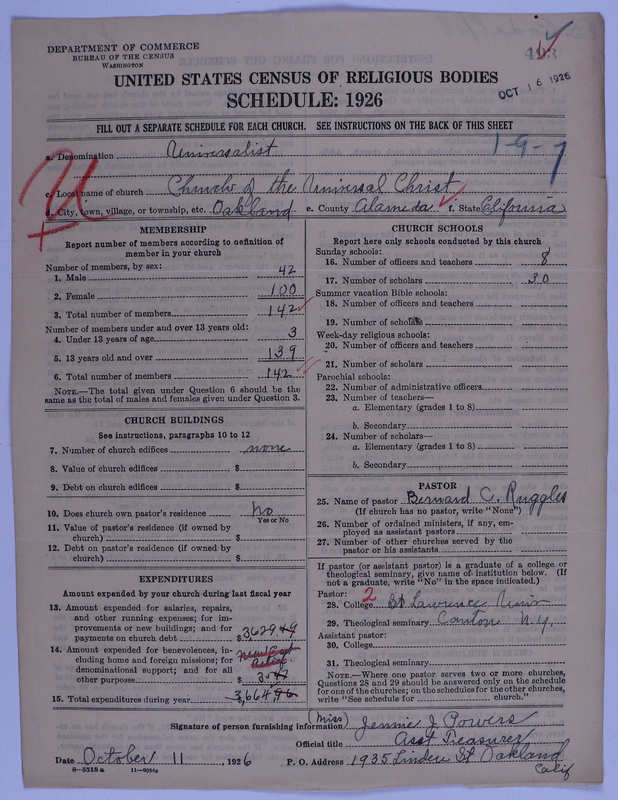 DEPARTMENT OF COMMERCE
BUREAU OF THE CENSUS
WASHINGTON
OCT 16 1926
UNITED STATES CENSUS OF RELIGIOUS BODIES
SCHEDULE: 1926
FILL OUT A SEPARATE SCHEDULE FOR EACH CHURCH. SEE INSTRUCTIONS ON THE BACK OF THIS SHEET
a. Denomination Universalist
1-9-7
c. Local name of church Church of the Universal Christ
d. City, town, village, or township, etc. Oakland e. County Alameda f. State California
MEMBERSHIP
Report number of members according to definition of
member in your church
Number of members, by sex:
1. Male 42
2. Female 100
3. Total number of members 142
Number of members under and over 13 years old:
4. Under 13 years of age 3
5. 13 years old and over 139
6. Total number of members 142
NOTE.—The total given under Question 6 should be the
same as the total of males and females given under Question 3.
CHURCH BUILDINGS
See instructions, paragraphs 10 to 12
7. Number of church edifices none
8. Value of church edifices $
9. Debt on church edifices $
10. Does church own pastor's residence No
Yes or No
11. Value of pastor's residence (if owned by
church) $
12. Debt on pastor's residence (if owned by
church) $
EXPENDITURES
Amount expended by your church during last fiscal year
13. Amount expended for salaries, repairs,
and other running expenses; for im-
provements or new buildings; and for
payments on church debt $3629.49
14. Amount expended for benevolences, in-
cluding home and foreign missions; for
denominational support; and for all
other purposes $
15. Total expenditures during year 3,664.96
CHURCH SCHOOLS
Report here only schools conducted by this church
Sunday schools:
16. Number of officers and teachers 8
17. Number of scholars 30
Summer vacation Bible schools:
18. Number of officers and teachers
19. Number of scholars
Week-day religious schools:
20. Number of officers and teachers
21. Number of scholars
Parochial schools:
22. Number of administrative officers
23. Number of teachers—
a. Elementary (grades 1 to 8)
b. Secondary
24. Number of scholars—
a. Elementary (grades 1 to 8)
b. Secondary
PASTOR
25. Name of pastor Bernard C. Ruggles
(If church has no pastor, write "None")
26. Number of ordained ministers, if any, em-
ployed as assistant pastors
27. Number of other churches served by the
pastor or his assistants
If pastor (or assistant pastor) is a graduate of a college or
theological seminary, give name of institution below. (If
not a graduate, write "No" in the space indicated.)
Pastor: 2
28. College St Lawrence Univ
29. Theological seminary Canton N.Y.
Assistant pastor:
30. College
31. Theological seminary
NOTE.—Where one pastor serves two or more churches,
Questions 28 and 29 should be answered only on the schedule
for one of the churches; on the schedules for the other churches,
write "See schedule for church."
Signature of person furnishing information (Miss) Jennie J. Powers
Official title Asst Treasurer
Date October 11, 1926 P. O. Address 1935 Linden St Oakland
Calif
8-5518a 11-9054z